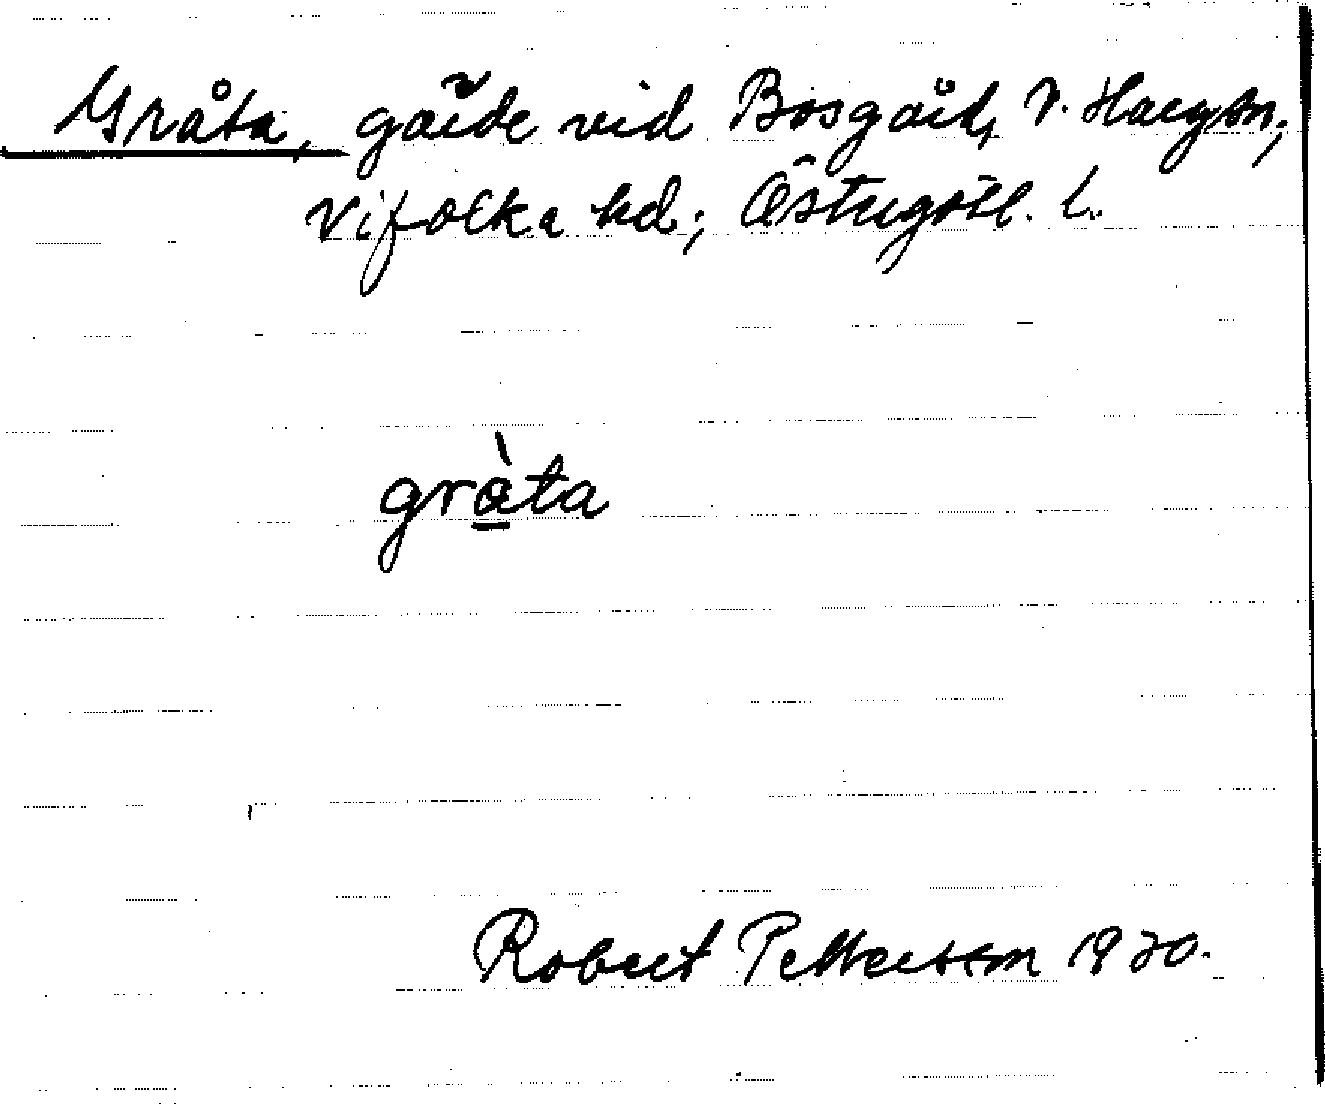 Gråta, gärde vid Bosgård, V. Hargs sn;
Vifolka hd; Östergötl. l.
gràta
Robert Pettersson 1930.